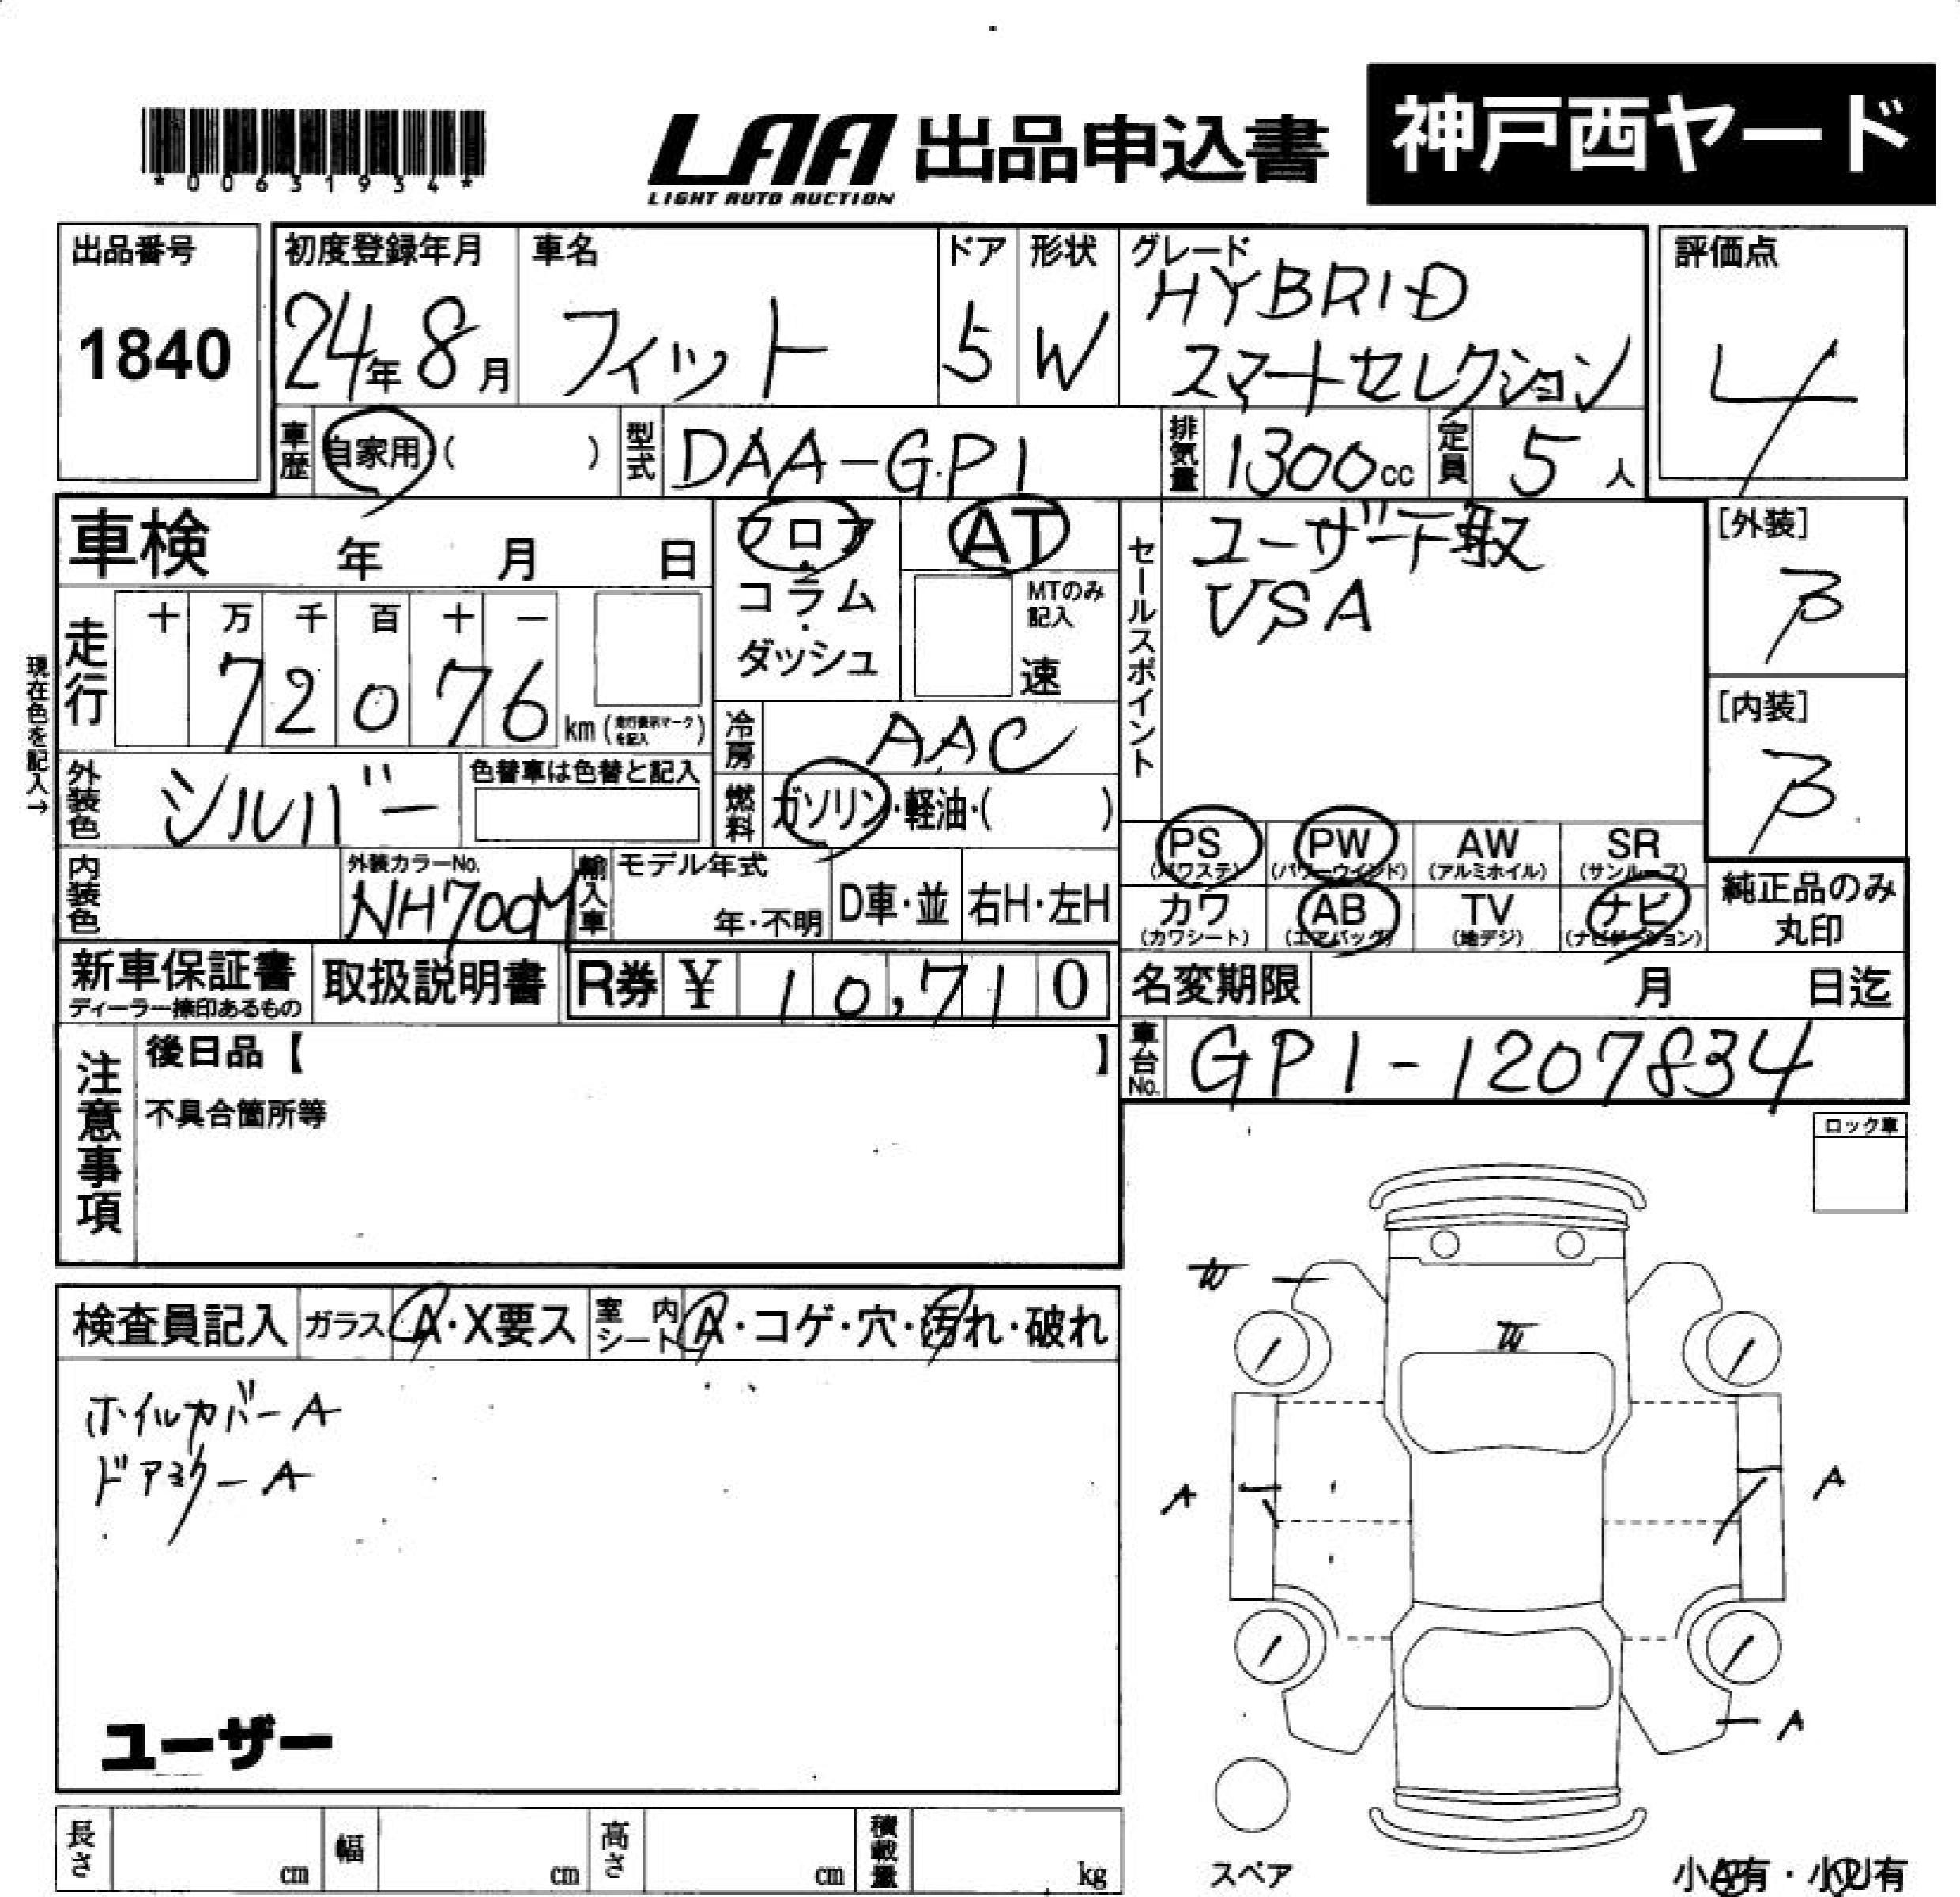 LAA 出品申込書 神戸西ヤード
LIGHT AUTO AUCTION
*00631934*
出品番号
1840
初度登録年月
24年8月
車名
フィット
ドア
5
形状
W
グレード
HYBRID
スマートセレクション
評価点
4
車歴 自家用 ( )
型式 DAA-GP1
排気量 1300cc
定員 5人
車検 年 月 日
フロア・
コラム・
ダッシュ
AT
MTのみ
記入
速
セールスポイント
ユーザー下取
VSA
[外装]
B
[内装]
B
現在色を記入→
走行
十 万 千 百 十 一
7 2 0 7 6
km (走行表示マークを記入)
冷房 AAC
外装色 シルバー
色替車は色替と記入
燃料 ガソリン・軽油・( )
PS
(パワステ)
PW
(パワーウインド)
AW
(アルミホイル)
SR
(サンルーフ)
カワ
(カワシート)
AB
(エアバッグ)
TV
(地デジ)
ナビ
(ナビゲーション)
純正品のみ
丸印
内装色
外装カラーNo.
NH700M
輸入車
モデル年式
年・不明
D車・並
右H・左H
新車保証書
ディーラー捺印あるもの
取扱説明書
R券 ¥ 10,710
名変期限 月 日迄
車台No. GP1-1207834
注意事項
後日品【 】
不具合箇所等
ロック車
検査員記入 ガラス A・X要ス 室内シート A・コゲ・穴・汚れ・破れ
ホイルカバーA
ドアミラーA
ユーザー
W
W
A
A
A
長さ cm 幅 cm 高さ cm 積載量 kg
スペア
小A有・小U有